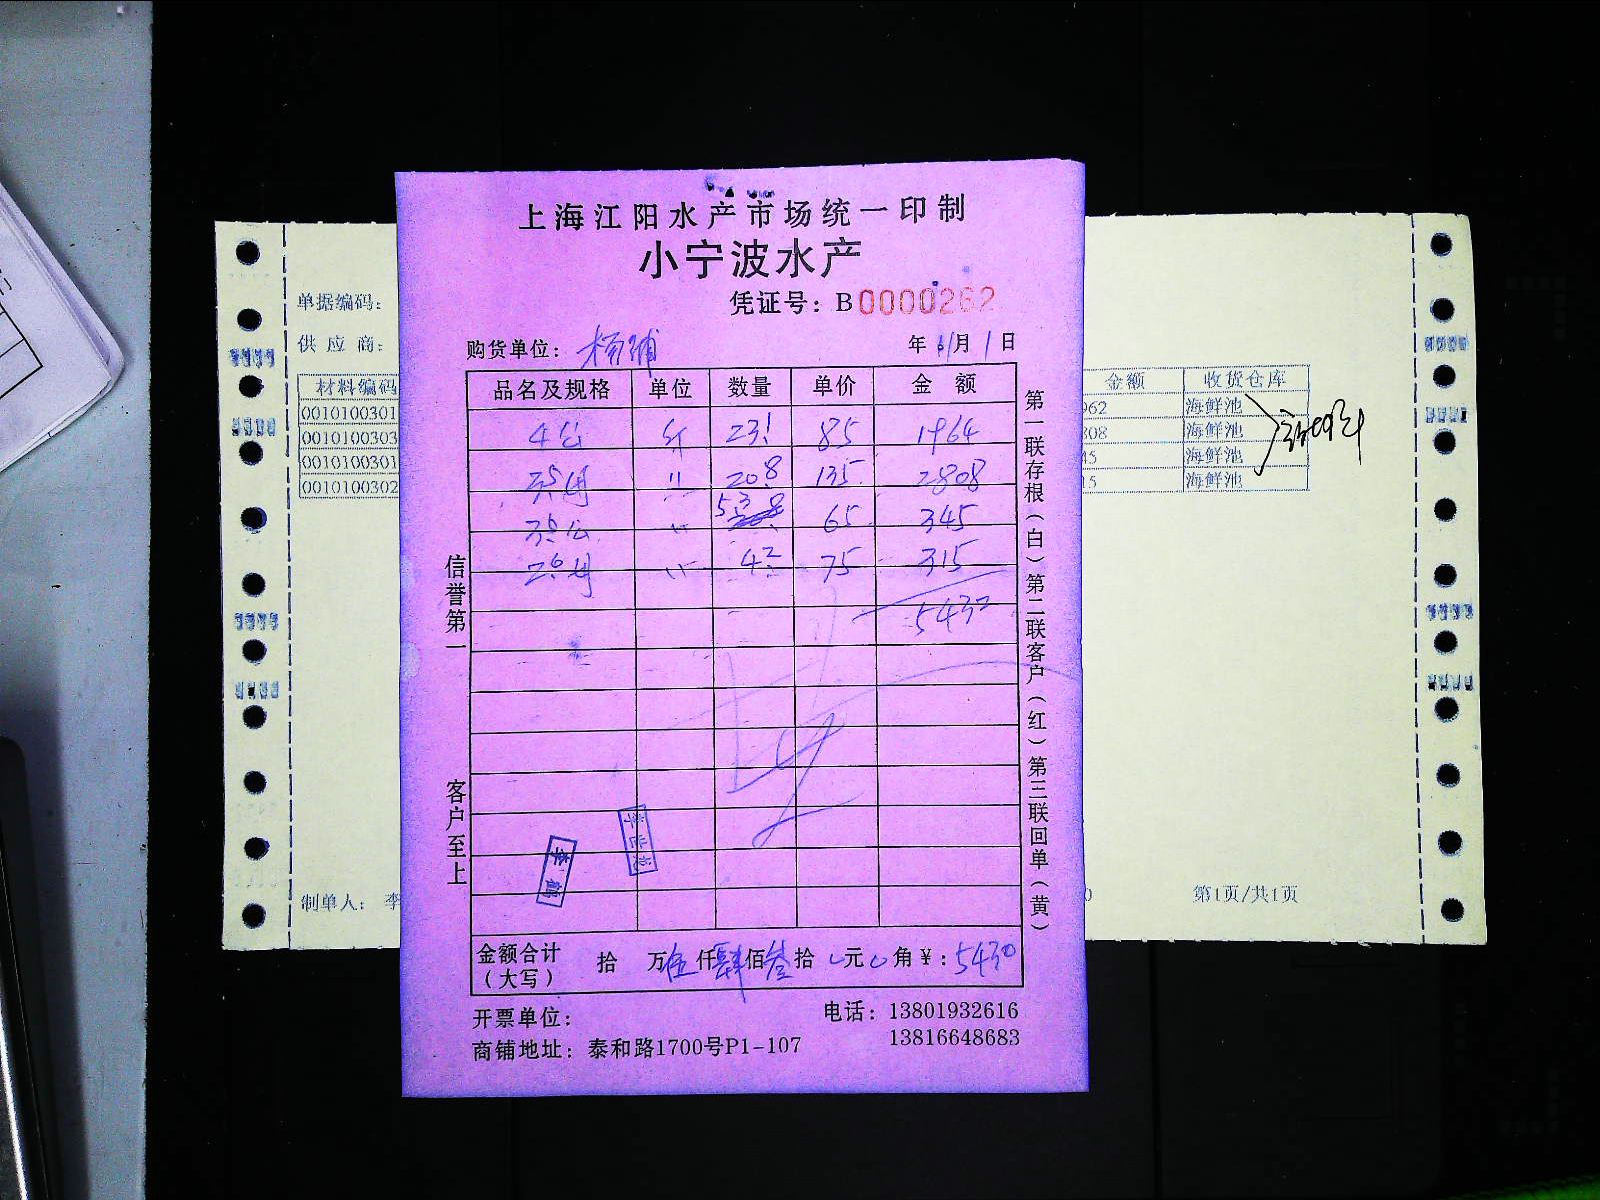 上海江阳水产市场统一印制
小宁波水产
凭证号：B0000262
购货单位：杨浦 年 11月 1日
品名及规格 单位 数量 单价 金额
4公 斤 23.1 85 1964
3.5母 〃 20.8 135 2808
3.5公 〃 5.3 65 345
2.6母 〃 4.2 75 315
5432
金额合计（大写） 拾 万伍仟肆佰叁拾 0元0角￥：5430
开票单位：
电话：13801932616
13816648683
商铺地址：泰和路1700号P1-107
信誉第一
客户至上
第一联存根（白）第二联客户（红）第三联回单（黄）
李鹤
单据编码：
供应商：
材料编码
0010100301
0010100303
0010100301
0010100302
制单人：李
金额 收货仓库
962 海鲜池
808 海鲜池
45 海鲜池
15 海鲜池
0 第1页/共1页